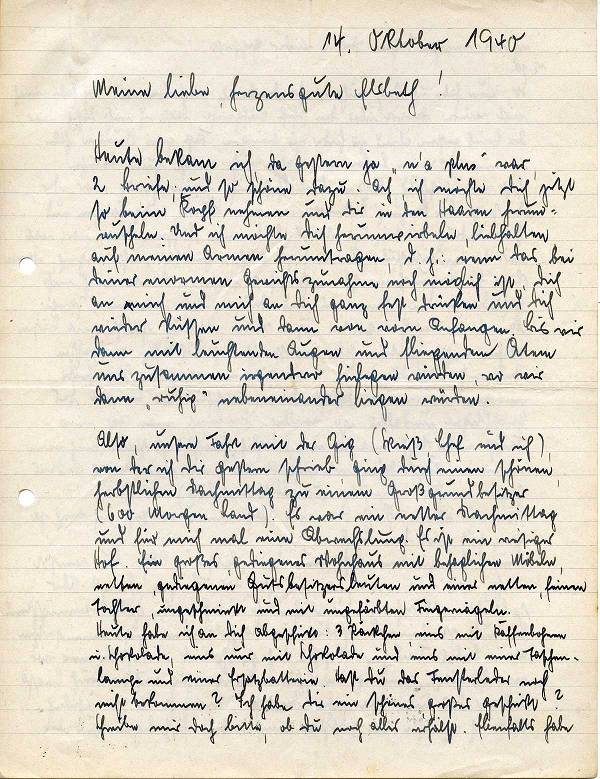 14. Oktober 1940
Meine liebe, herzensgute Elsbeth!
Heute bekam ich, da gestern ja „n'a plus" war,
2 Briefe, und so schöne dazu. Ach, ich möchte Dich jetzt
so beim Kopf nehmen und dir in den Haaren herum-
wuscheln. Und ich möchte Dich herumwirbeln, liebhalten
auf meinen Armen herumtragen, d. h.: wenn das bei
deiner enormen Gewichtszunahme noch möglich ist, Dich
an mich und mich an Dich ganz fest drücken und Dich
wieder küssen und dann von vorn anfangen, bis wir
dann mit leuchtenden Augen und fliegendem Atem
uns zusammen irgendwo hinlegen würden, wo wir
dann „ruhig" nebeneinander liegen würden.
Also, unsere Fahrt mit der Gig (Chef und ich),
von der ich Dir gestern schrieb, ging durch einen schönen,
herbstlichen Nachmittag zu einem Großgrundbesitzer
(600 Morgen Land). Es war ein netter Nachmittag
und für mich mal eine Abwechslung. Es ist ein riesiger
Hof. Ein großes, gediegenes Wohnhaus mit behaglichen Möbeln,
netten, gediegenen Gutsbesitzersleuten und einer netten, feinen
Tochter, ungeschminkt und mit ungefärbten Fingernägeln.
Heute habe ich an Dich abgeschickt: 3 Päckchen, eins mit Kaffeebohnen
u. Schokolade, eins nur mit Schokolade und eins mit einer Taschen-
lampe und einer Ersatzbatterie. Hast Du das Fensterleder noch
nicht bekommen? Ich habe Dir ein schönes großes geschickt?
Schreibe mir doch bitte, ob Du auch alles erhälst. Ebenfalls habe